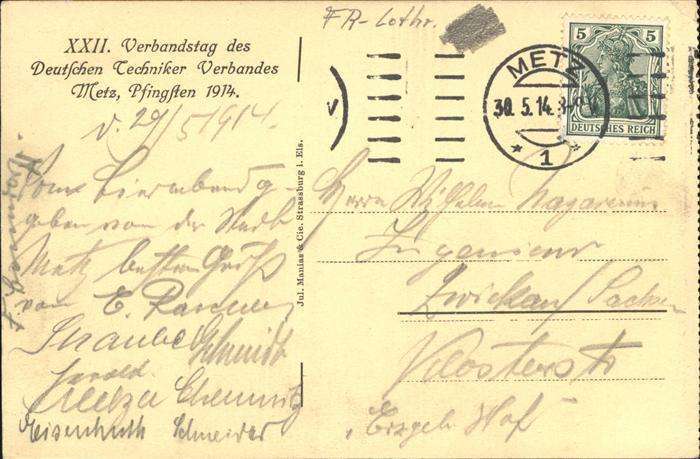 FR-Lothr.
XXII. Verbandstag des
Deutschen Techniker Verbandes
Metz, Pfingsten 1914.
v. 29/5 1914.
Vom Bierabend ge-
geben von der Stadt
Metz besten Gruß
von E.
Straube Schmidt
Chemnitz
Eisenhuth Schneider
Jul. Manias & Cie. Strassburg i. Els.
METZ
30.5.14.
* 1 *
5 5
DEUTSCHES REICH
Herrn Wilhelm
Ingenieur
Zwickau/Sachsen
Klosterstr
"Erzgeb. Hof"